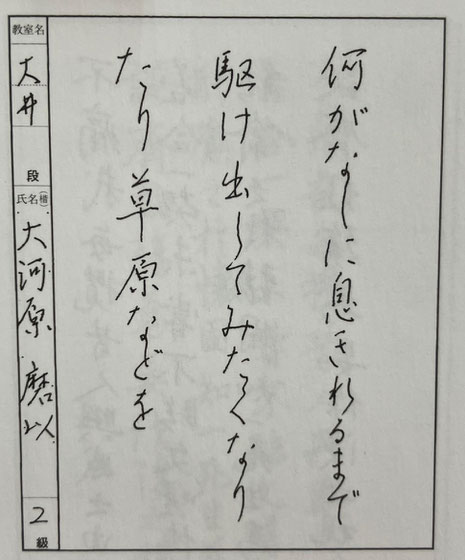 何がなしに息きれるまで
駆け出してみたくなり
たり草原などを
教室名
大井
段
氏名(楷)
大河原 磨以
2級